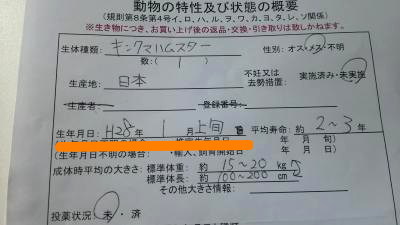 動物の特性及び状態の概要
(規則第8条第4号イ、ロ、ハ、ル、ヲ、ワ、カ、ヨ、タ、レ、ソ関係)
※生き物につき、お買い上げ後の返品・交換・引き取りは致しかねます。
生体種類: キンクマハムスター 性別: オス・メス・不明
数:( 1 )
生産地: 日本 不妊又は去勢措置: 実施済み・未実施
生産者: 登録番号:
生年月日: H28 年 1 月 上旬 日 平均寿命: 約 2~3 年
(生年月日不明の場合 年 月 旬)
(生年月日不明の場合: ・輸入、飼育開始日 年 月 日)
成体時平均の大きさ: 標準体重: 約 15~20 kg
標準体長: 約 100~200 cm
その他大きさ情報:
投薬状況: 未・済